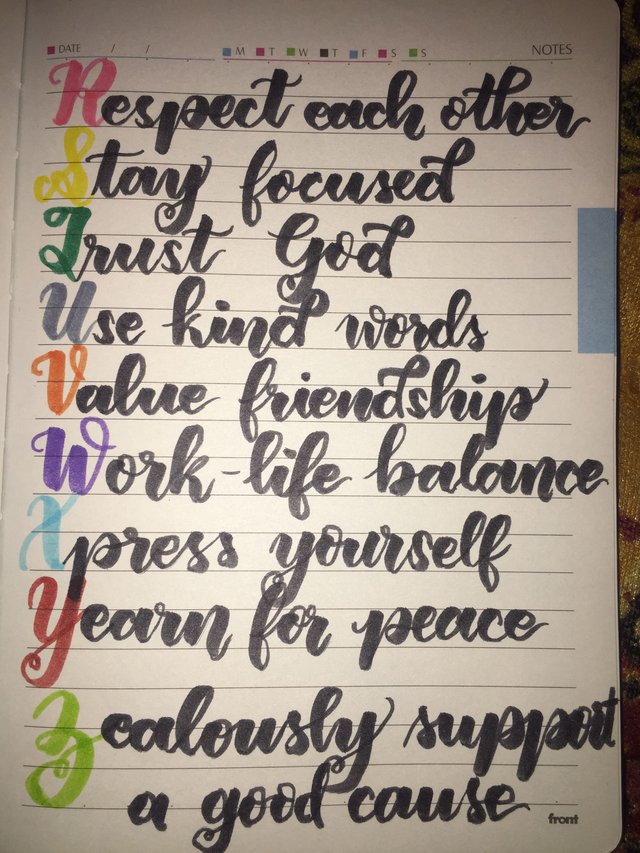 DATE / / M T W T F S S NOTES
Respect each other
Stay focused
Trust God
Use kind words
Value friendship
Work-life balance
Xpress yourself
Yearn for peace
Zealously support
a good cause
front